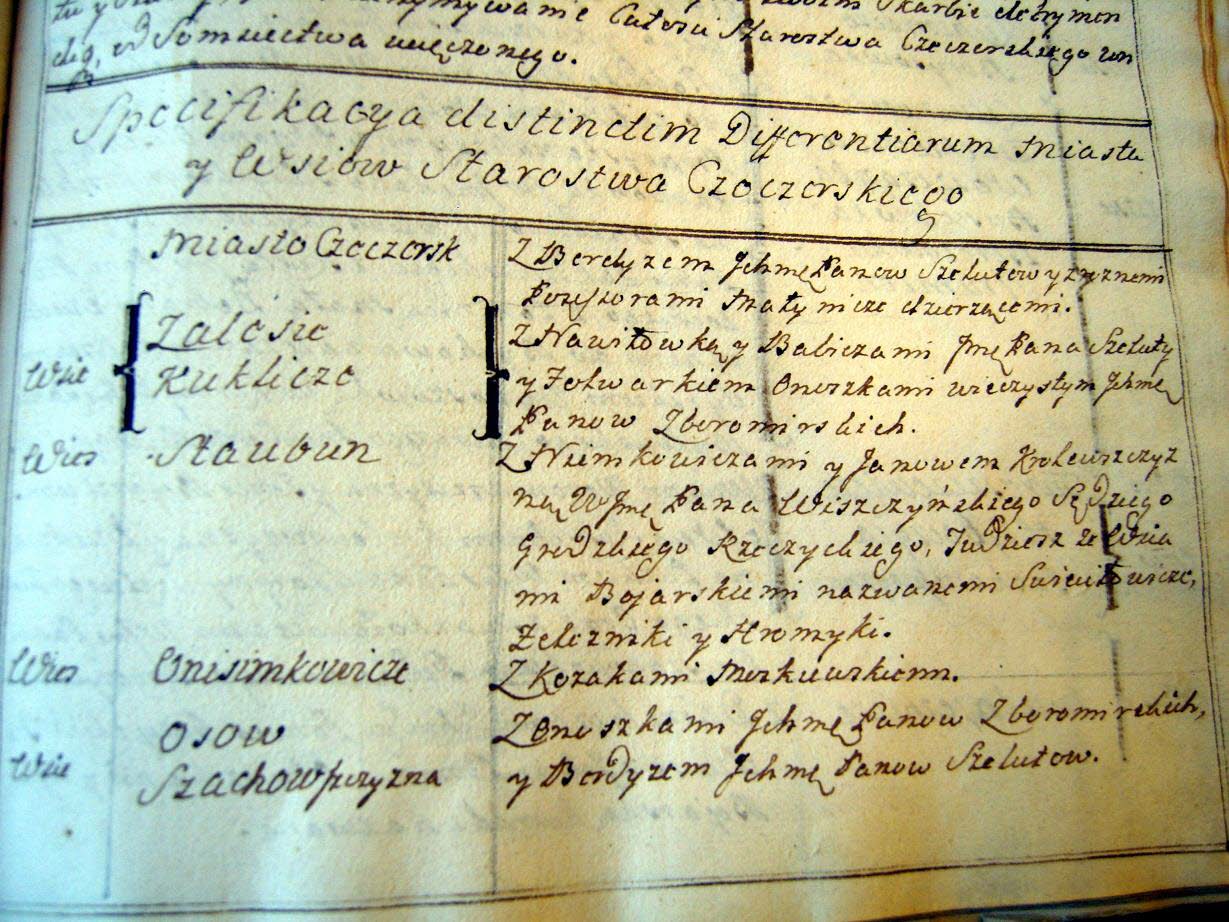 utrzymywanie Całości Starostwa Czeczerskiego
Specifikacya distinctim Differentiarum Miasta
y Wsiow Starostwa Czeczerskiego
Miasto Czeczersk
Z Berdyzem Jchmę Panow Szelutow y rożnemi
Possessorami Małynicze dzierżącemi.
Wsie
Zalesie
Kuklicze
Z Nawiłowką y Babiczami Jmę Pana Szeluty
y Folwarkiem Onoszkami wieczystym Jchmę
Panow Zboromirskich.
Wies Staubun
Z Niemkowiczami y Janowem Krolewszczyz
ną WJmę Pana Wiszczyńskiego Sędziego
Grodzkiego Rzeczyckiego, Tudziesz ze Wsia
mi Bojarskiemi nazwanemi Swiećiłowicze,
Zelezniki y Hromyki.
Wies Onisimkowicze
Z Kozakami Merkuwskiemi.
Wsie
Osow
Szachowszczyzna
Z Onoszkami Jchmę Panow Zboromirskich,
y Berdyzem Jchmę Panow Szelutow.